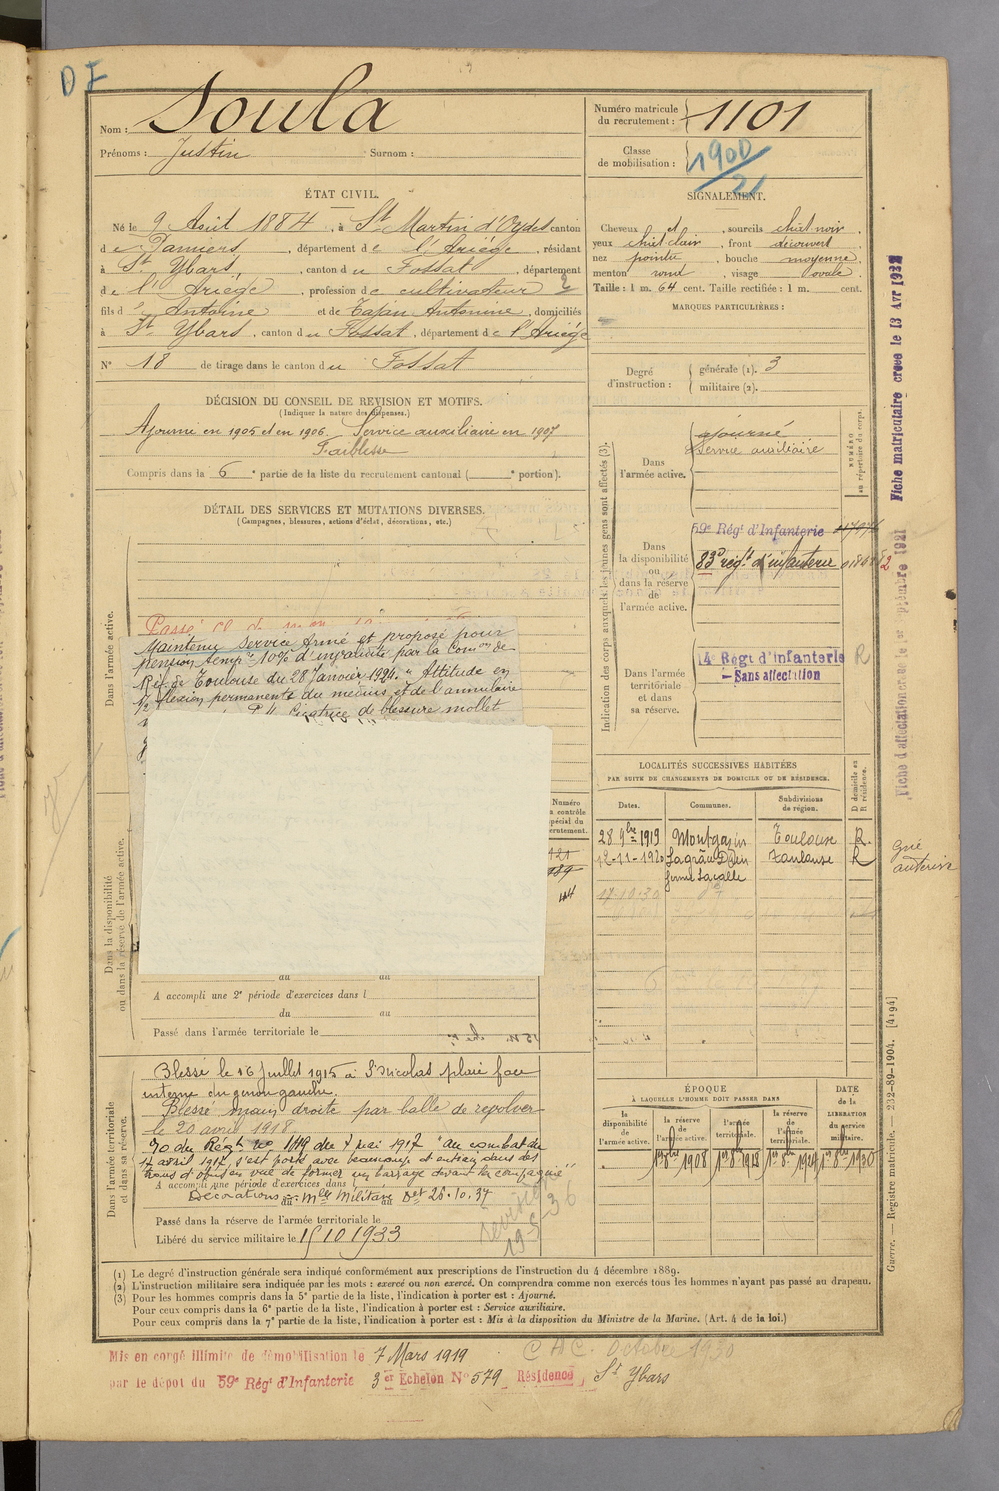 DF
Nom : Soula
Prénoms : Justin Surnom :
Numéro matricule du recrutement : 1101
Classe de mobilisation : 1900/21
ÉTAT CIVIL.
Né le 9 Août 1884, à St Martin d'Oydes canton
de Pamiers, département de l'Ariège, résidant
à St Ybars, canton du Fossat, département
de l'Ariège, profession de cultivateur
fils d'Antoine et de Tajan Antonine, domiciliés
à St Ybars, canton du Fossat, département de l'Ariège
N° 18 de tirage dans le canton du Fossat
SIGNALEMENT.
Cheveux et, sourcils chât noir,
yeux chât clair, front découvert
nez pointu, bouche moyenne,
menton rond, visage ovale.
Taille : 1 m. 64 cent. Taille rectifiée : 1 m. cent.
MARQUES PARTICULIÈRES :
Degré d'instruction : générale (1). 3
militaire (2).
DÉCISION DU CONSEIL DE REVISION ET MOTIFS.
(Indiquer la nature des dispenses.)
Ajourné en 1905 et en 1906. Service auxiliaire en 1907
Faiblesse
Compris dans la 6e partie de la liste du recrutement cantonal ( e portion).
DÉTAIL DES SERVICES ET MUTATIONS DIVERSES.
(Campagnes, blessures, actions d'éclat, décorations, etc.)
Dans l'armée active.
Passé
Maintenu Service Armé et proposé pour
pension temp. 10% d'invalidité par la Comon de
Réf. de Toulouse du 28 Janvier 1924. " Attitude en
1/2 flexion permanente du médius et de l'annulaire
Cicatrice de blessure mollet
Numéro
contrôle
spécial du
recrutement.
121
189
44
Dans la disponibilité ou dans la réserve de l'armée active.
du au
A accompli une 2e période d'exercices dans l
du au
Passé dans l'armée territoriale le
Dans l'armée territoriale et dans sa réserve.
Blessé le 16 Juillet 1915 à St Nicolas plaie face
interne du genou gauche.
Blessé main droite par balle de revolver
le 20 avril 1918.
O du Régt no 149 du 7 mai 1917 "au combat du
17 avril 1917, s'est porté avec beaucoup et entrain dans des
trous d'obus en vue de former un barrage devant la compagnie"
A accompli une période d'exercices dans l
Décorations Mlle Militaire Det 26.10.37
du au
Passé dans la réserve de l'armée territoriale le
Libéré du service militaire le 15 10 1933
19-5-36
Indication des corps auxquels les jeunes gens sont affectés (3).
NUMÉRO au répertoire du corps.
Dans l'armée active.
ajourné
Service auxiliaire
Dans la disponibilité ou dans la réserve de l'armée active.
59e Régt d'Infanterie
83e régt d'infanterie
Dans l'armée territoriale et dans sa réserve.
14e Régt d'Infanterie R
– Sans affectation
LOCALITÉS SUCCESSIVES HABITÉES
PAR SUITE DE CHANGEMENTS DE DOMICILE OU DE RÉSIDENCE.
Dates. Communes. Subdivisions de région. D domicile ou R résidence.
28 9bre 1919 Montgazin Toulouse R.
12-11-1920 Lagrâce Dieu Toulouse R
ferme Lacalle
17-10-30
ÉPOQUE
À LAQUELLE L'HOMME DOIT PASSER DANS
la disponibilité de l'armée active.
la réserve de l'armée active.
l'armée territoriale.
la réserve de l'armée territoriale.
DATE de la LIBÉRATION du service militaire.
1er 8bre 1908 1er 8bre 1918 1er 8bre 1924 1er 8bre 1930
(1) Le degré d'instruction générale sera indiqué conformément aux prescriptions de l'instruction du 4 décembre 1889.
(2) L'instruction militaire sera indiquée par les mots : exercé ou non exercé. On comprendra comme non exercés tous les hommes n'ayant pas passé au drapeau.
(3) Pour les hommes compris dans la 5e partie de la liste, l'indication à porter est : Ajourné.
Pour ceux compris dans la 6e partie de la liste, l'indication à porter est : Service auxiliaire.
Pour ceux compris dans la 7e partie de la liste, l'indication à porter est : Mis à la disposition du Ministre de la Marine. (Art. 4 de la loi.)
Mis en congé illimité de démobilisation le 7 Mars 1919
par le dépôt du 59e Régt d'Infanterie 3er Echelon No 579 Résidence St Ybars
C A C. Octobre 1930
Fiche matriculaire créée le 13 Avr 1932
Fiche d'affectation créée le 1er septembre 1921
Guerre. — Registre matricule. — 232-89-1904. [4194]